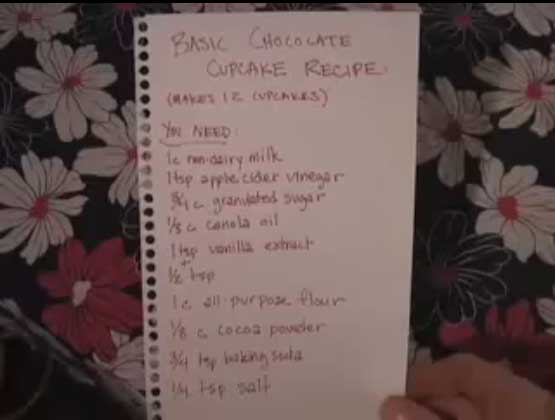 BASIC CHOCOLATE
CUPCAKE RECIPE:
(MAKES 12 CUPCAKES)
YOU NEED:
1c non-dairy milk
1 tsp apple cider vinegar
3/4 c granulated sugar
1/3 c canola oil
1 tsp vanilla extract
1/2 + tsp
1 c all purpose flour
1/3 c cocoa powder
3/4 tsp baking soda
1/4 tsp salt